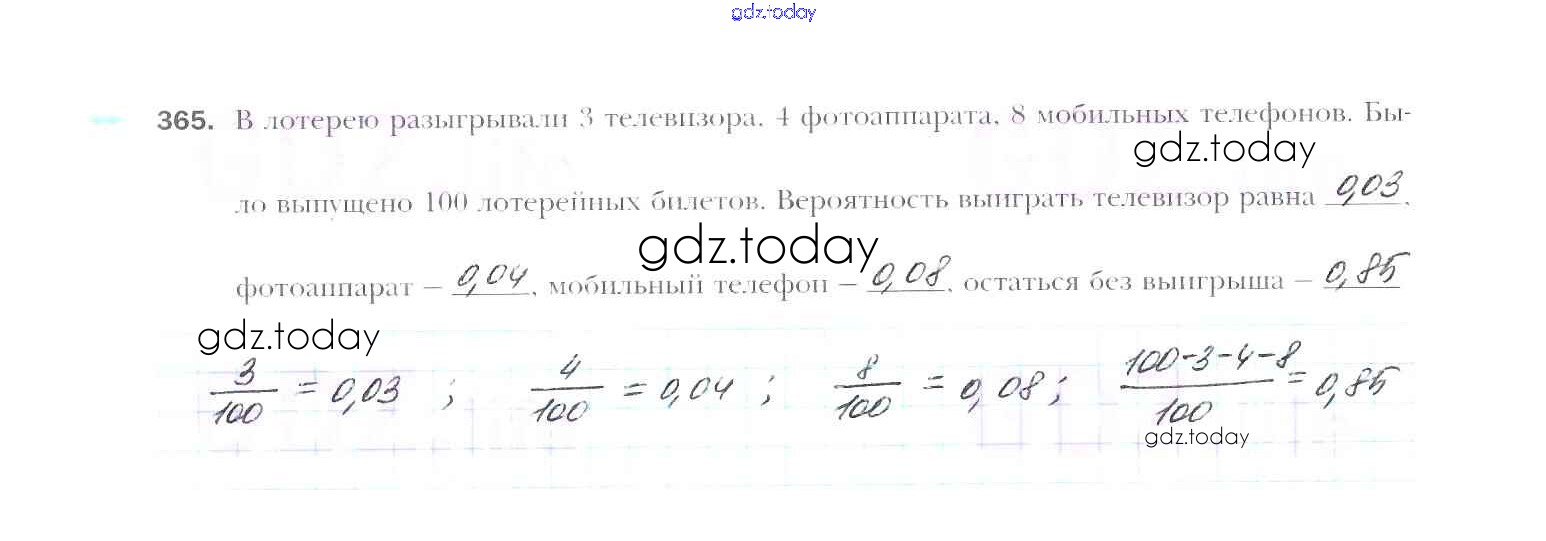 gdz.today
365. В лотерею разыгрывали 3 телевизора, 4 фотоаппарата, 8 мобильных телефонов. Бы-
gdz.today
ло выпущено 100 лотерейных билетов. Вероятность выиграть телевизор равна 0,03,
gdz.today
фотоаппарат – 0,04, мобильный телефон – 0,08, остаться без выигрыша – 0,85
gdz.today
3/100 = 0,03 ; 4/100 = 0,04 ; 8/100 = 0,08 ; 100-3-4-8/100 = 0,85
gdz.today